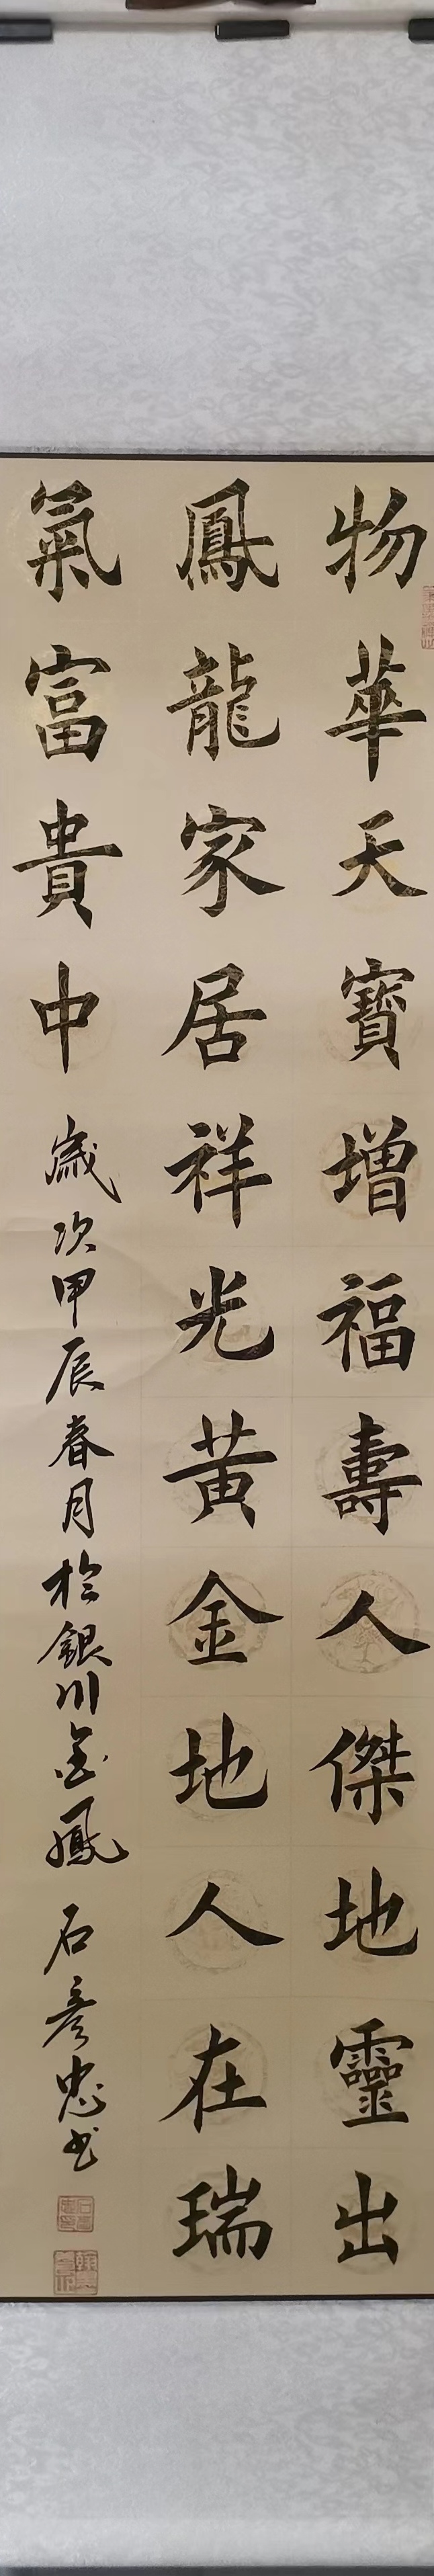 物華天寶增福壽人傑地靈出
鳳龍家居祥光黃金地人在瑞
氣富貴中
歲次甲辰春月於銀川金鳳 石彥忠书